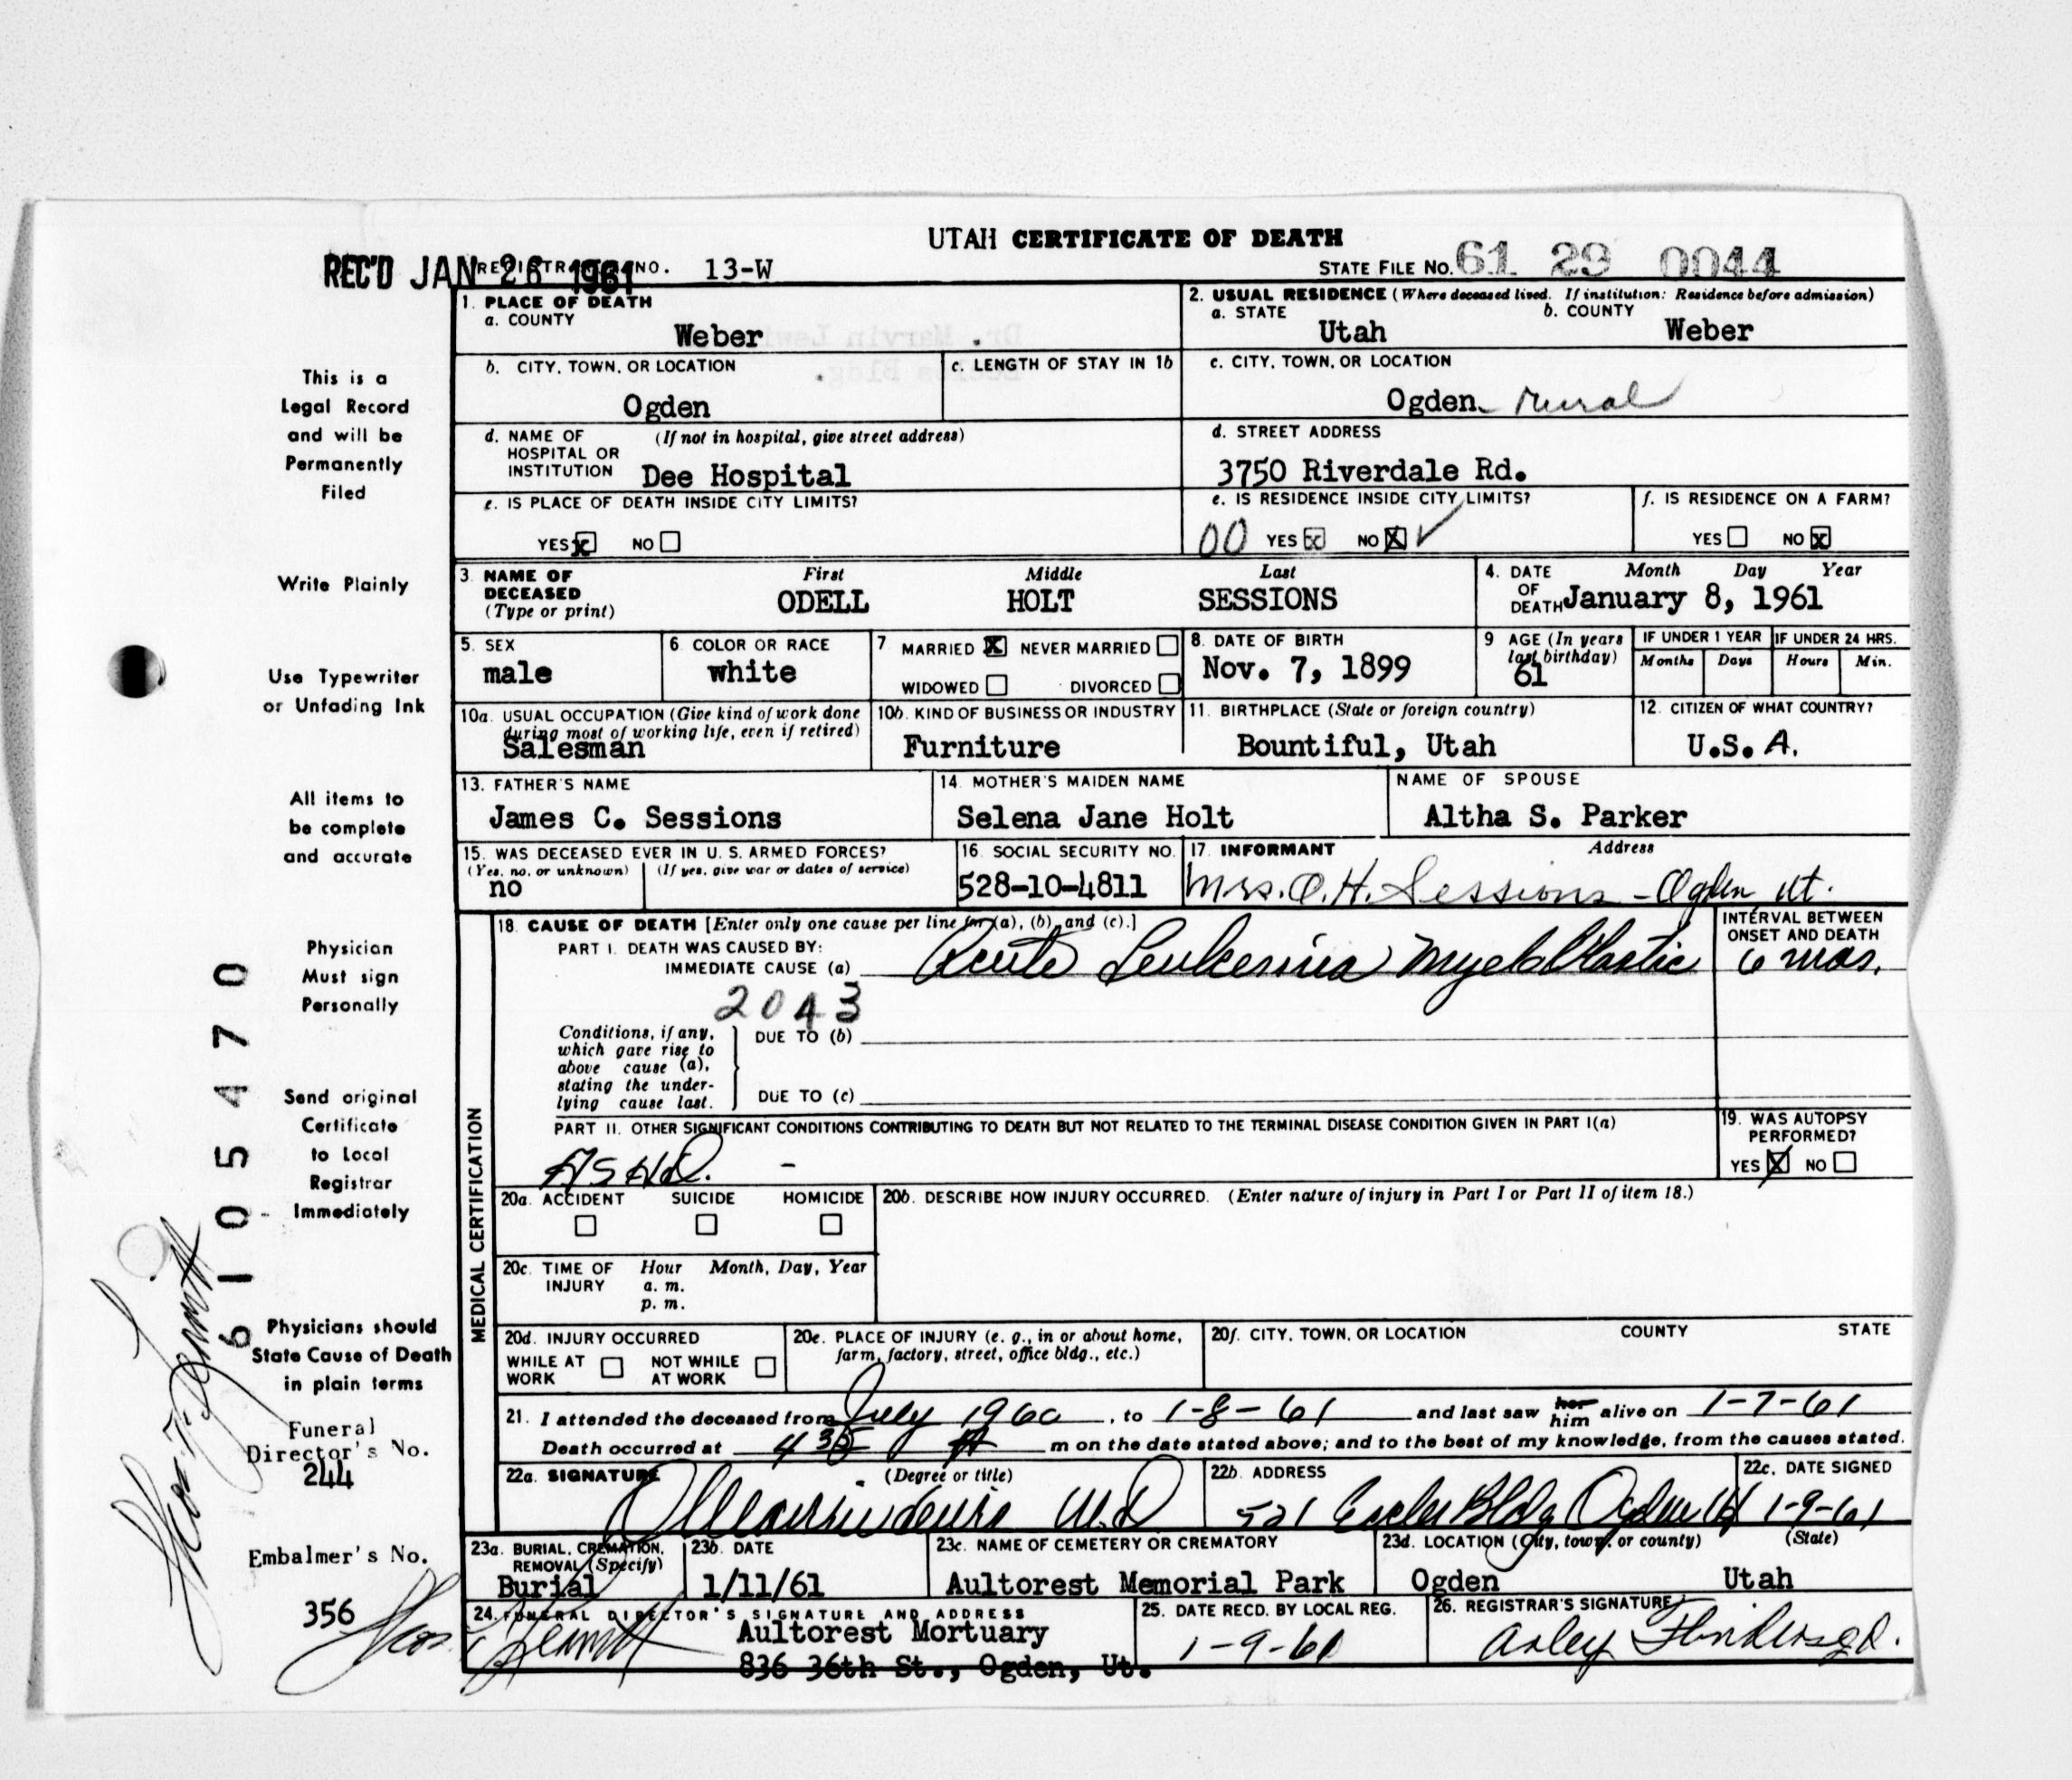 UTAH CERTIFICATE OF DEATH
REC'D JAN 26 1961
REGISTRAR'S NO. 13-W
STATE FILE NO. 61 29 0044
1. PLACE OF DEATH
a. COUNTY
Weber
2. USUAL RESIDENCE (Where deceased lived. If institution: Residence before admission)
a. STATE
Utah
b. COUNTY
Weber
b. CITY, TOWN, OR LOCATION
Ogden
c. LENGTH OF STAY IN 1b
c. CITY, TOWN, OR LOCATION
Ogden rural
d. NAME OF HOSPITAL OR INSTITUTION
(If not in hospital, give street address)
Dee Hospital
d. STREET ADDRESS
3750 Riverdale Rd.
e. IS PLACE OF DEATH INSIDE CITY LIMITS?
YES x NO
e. IS RESIDENCE INSIDE CITY LIMITS?
00 YES x NO X ✓
f. IS RESIDENCE ON A FARM?
YES NO x
3. NAME OF DECEASED
(Type or print)
First Middle Last
ODELL HOLT SESSIONS
4. DATE OF DEATH
Month Day Year
January 8, 1961
5. SEX
male
6. COLOR OR RACE
white
7 MARRIED X NEVER MARRIED
WIDOWED DIVORCED
8. DATE OF BIRTH
Nov. 7, 1899
9 AGE (In years last birthday)
61
IF UNDER 1 YEAR
Months Days
IF UNDER 24 HRS.
Hours Min.
10a. USUAL OCCUPATION (Give kind of work done during most of working life, even if retired)
Salesman
10b. KIND OF BUSINESS OR INDUSTRY
Furniture
11. BIRTHPLACE (State or foreign country)
Bountiful, Utah
12. CITIZEN OF WHAT COUNTRY?
U.S.A.
13. FATHER'S NAME
James C. Sessions
14. MOTHER'S MAIDEN NAME
Selena Jane Holt
NAME OF SPOUSE
Altha S. Parker
15. WAS DECEASED EVER IN U. S. ARMED FORCES?
(Yes, no, or unknown) (If yes, give war or dates of service)
no
16. SOCIAL SECURITY NO.
528-10-4811
17. INFORMANT Address
Mrs. O.H. Sessions - Ogden Ut.
18. CAUSE OF DEATH [Enter only one cause per line for (a), (b), and (c).]
PART I. DEATH WAS CAUSED BY:
IMMEDIATE CAUSE (a) Acute Leukemia Myeloblastic
INTERVAL BETWEEN ONSET AND DEATH
6 mos.
2043
Conditions, if any, which gave rise to above cause (a), stating the underlying cause last.
DUE TO (b)
DUE TO (c)
PART II. OTHER SIGNIFICANT CONDITIONS CONTRIBUTING TO DEATH BUT NOT RELATED TO THE TERMINAL DISEASE CONDITION GIVEN IN PART I(a)
ASHD. -
19. WAS AUTOPSY PERFORMED?
YES X NO
20a. ACCIDENT SUICIDE HOMICIDE
20b. DESCRIBE HOW INJURY OCCURRED. (Enter nature of injury in Part I or Part II of item 18.)
20c. TIME OF INJURY
Hour Month, Day, Year
a. m.
p. m.
20d. INJURY OCCURRED
WHILE AT WORK NOT WHILE AT WORK
20e. PLACE OF INJURY (e. g., in or about home, farm, factory, street, office bldg., etc.)
20f. CITY, TOWN, OR LOCATION COUNTY STATE
21. I attended the deceased from July 1960, to 1-8-61 and last saw her him alive on 1-7-61
Death occurred at 4 35 A m on the date stated above; and to the best of my knowledge, from the causes stated.
22a. SIGNATURE (Degree or title)
Marvin Lewis M.D
22b. ADDRESS
521 Eccles Bldg Ogden Ut
22c. DATE SIGNED
1-9-61
23a. BURIAL, CREMATION, REMOVAL (Specify)
Burial
23b. DATE
1/11/61
23c. NAME OF CEMETERY OR CREMATORY
Aultorest Memorial Park
23d. LOCATION (City, town, or county) (State)
Ogden Utah
24. FUNERAL DIRECTOR'S SIGNATURE AND ADDRESS
Aultorest Mortuary
836 36th St., Ogden, Ut.
25. DATE RECD. BY LOCAL REG.
1-9-61
26. REGISTRAR'S SIGNATURE
MEDICAL CERTIFICATION
This is a
Legal Record
and will be
Permanently
Filed
Write Plainly
Use Typewriter
or Unfading Ink
All items to
be complete
and accurate
Physician
Must sign
Personally
Send original
Certificate
to Local
Registrar
Immediately
Physicians should
State Cause of Death
in plain terms
Funeral
Director's No.
244
Embalmer's No.
356
6105470